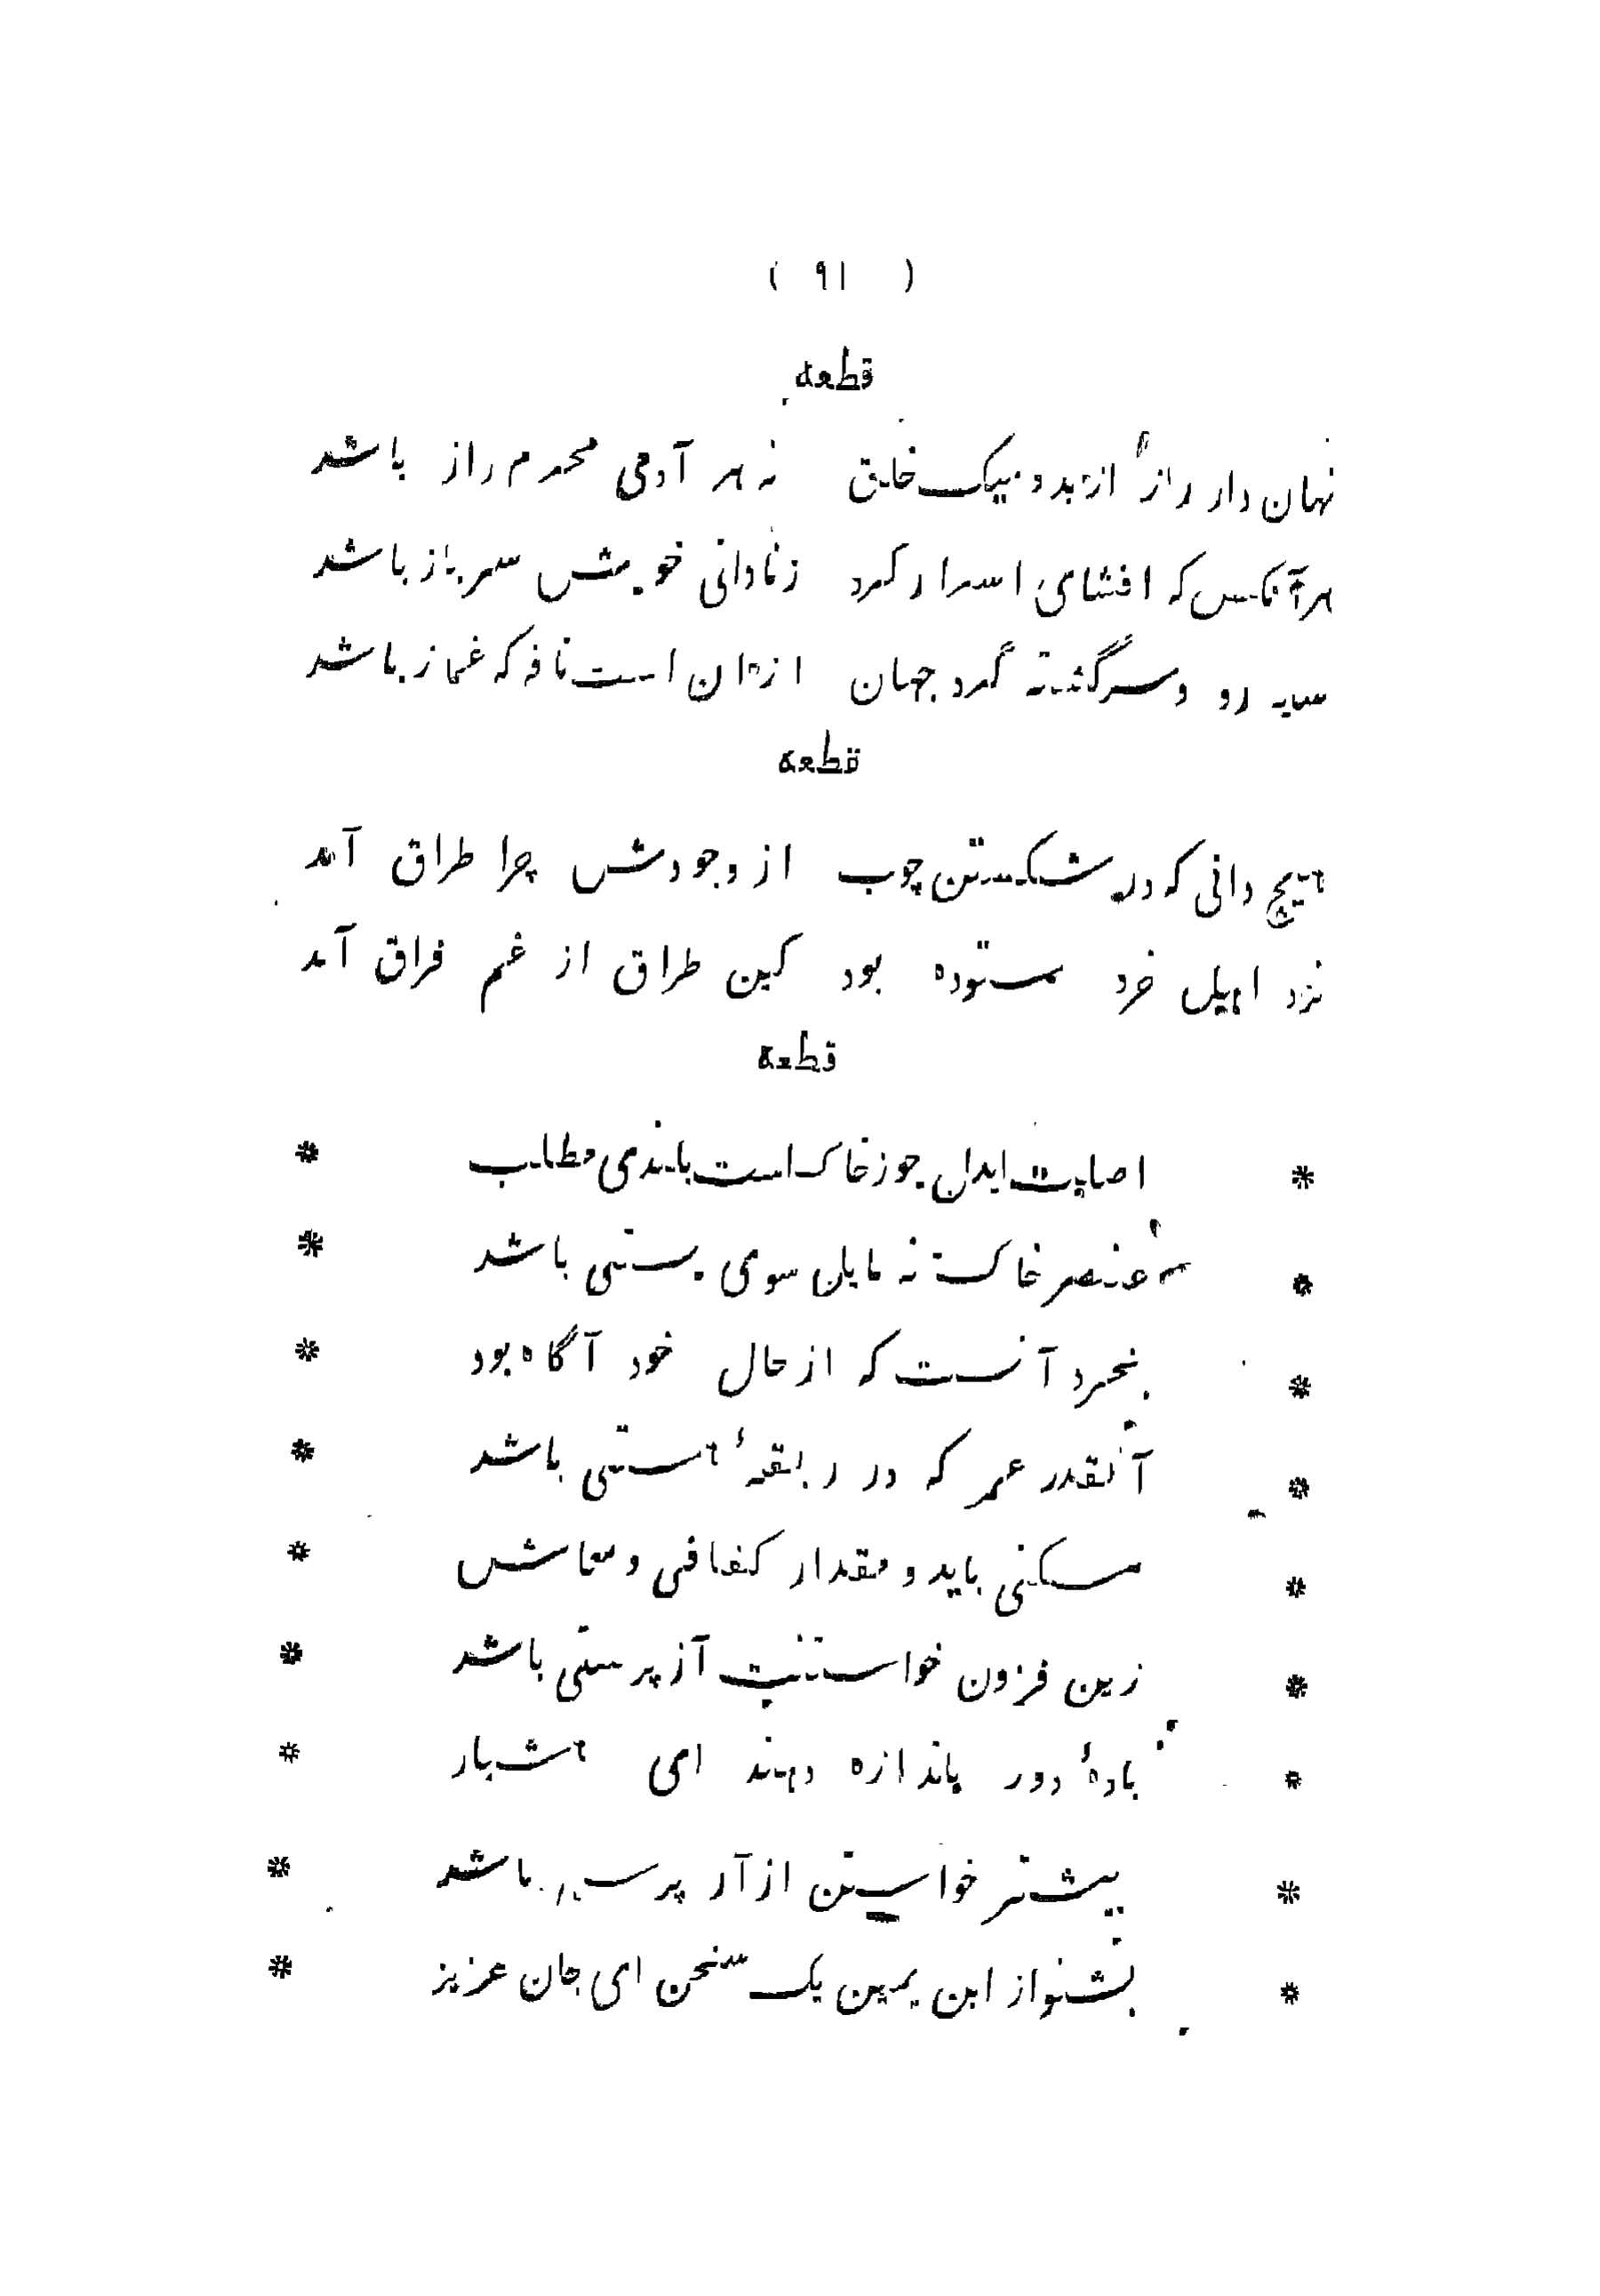 ( ۹۱ )
قطعه
نهان دار راز از بد و نیک خلق نه هر آدمی محرم راز باشد
هر آنکس که افشای اسرار کرد ز نادانی خویش سرباز باشد
سیه رو و سرگشته گرد جهان از آن است نافه که غماز باشد
قطعه
هیچ دانی که در شکستن چوب از وجودش چرا طراق آمد
نزد اهل خرد ستوده بود کین طراق از غم فراق آمد
قطعه
* اصلت ایدل چو ز خاک است بلندی مطلب *
* عنصر خاک نه مایل سوی پستی باشد *
* بخرد آنست که از حال خود آگاه بود *
* آنقدر عمر که در ربقهٔ هستی باشد *
* مسکنی باید و مقدار کفافی و معاش *
* زین فزون خواستنت آز پرستی باشد *
* بادهٔ دور باندازه دهند ای هشیار *
* بیشتر خواستن از آز باشد *
* بشنو از ابن یمین یک سخن ای جان عزیز *